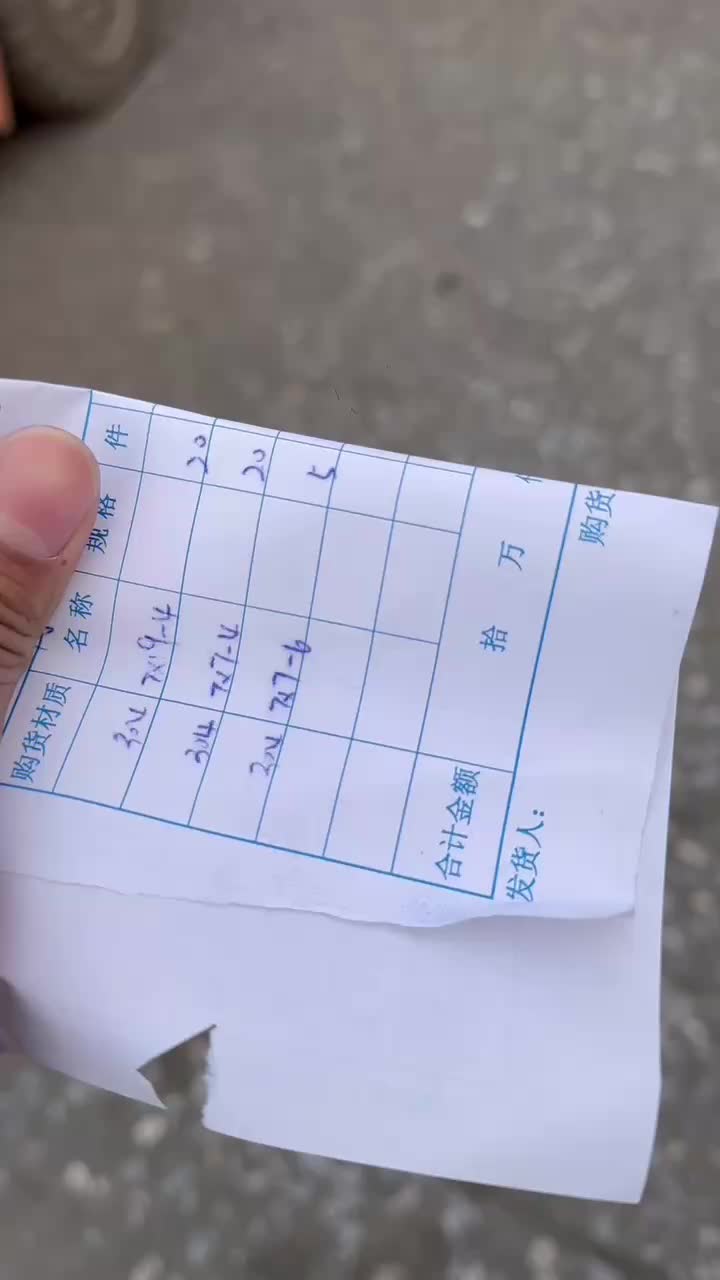 购货材质 名称 规格 件
304 7x19-4 20
304 7x7-4 20
304 7x7-6 5
合计金额 拾 万
发货人: 购货